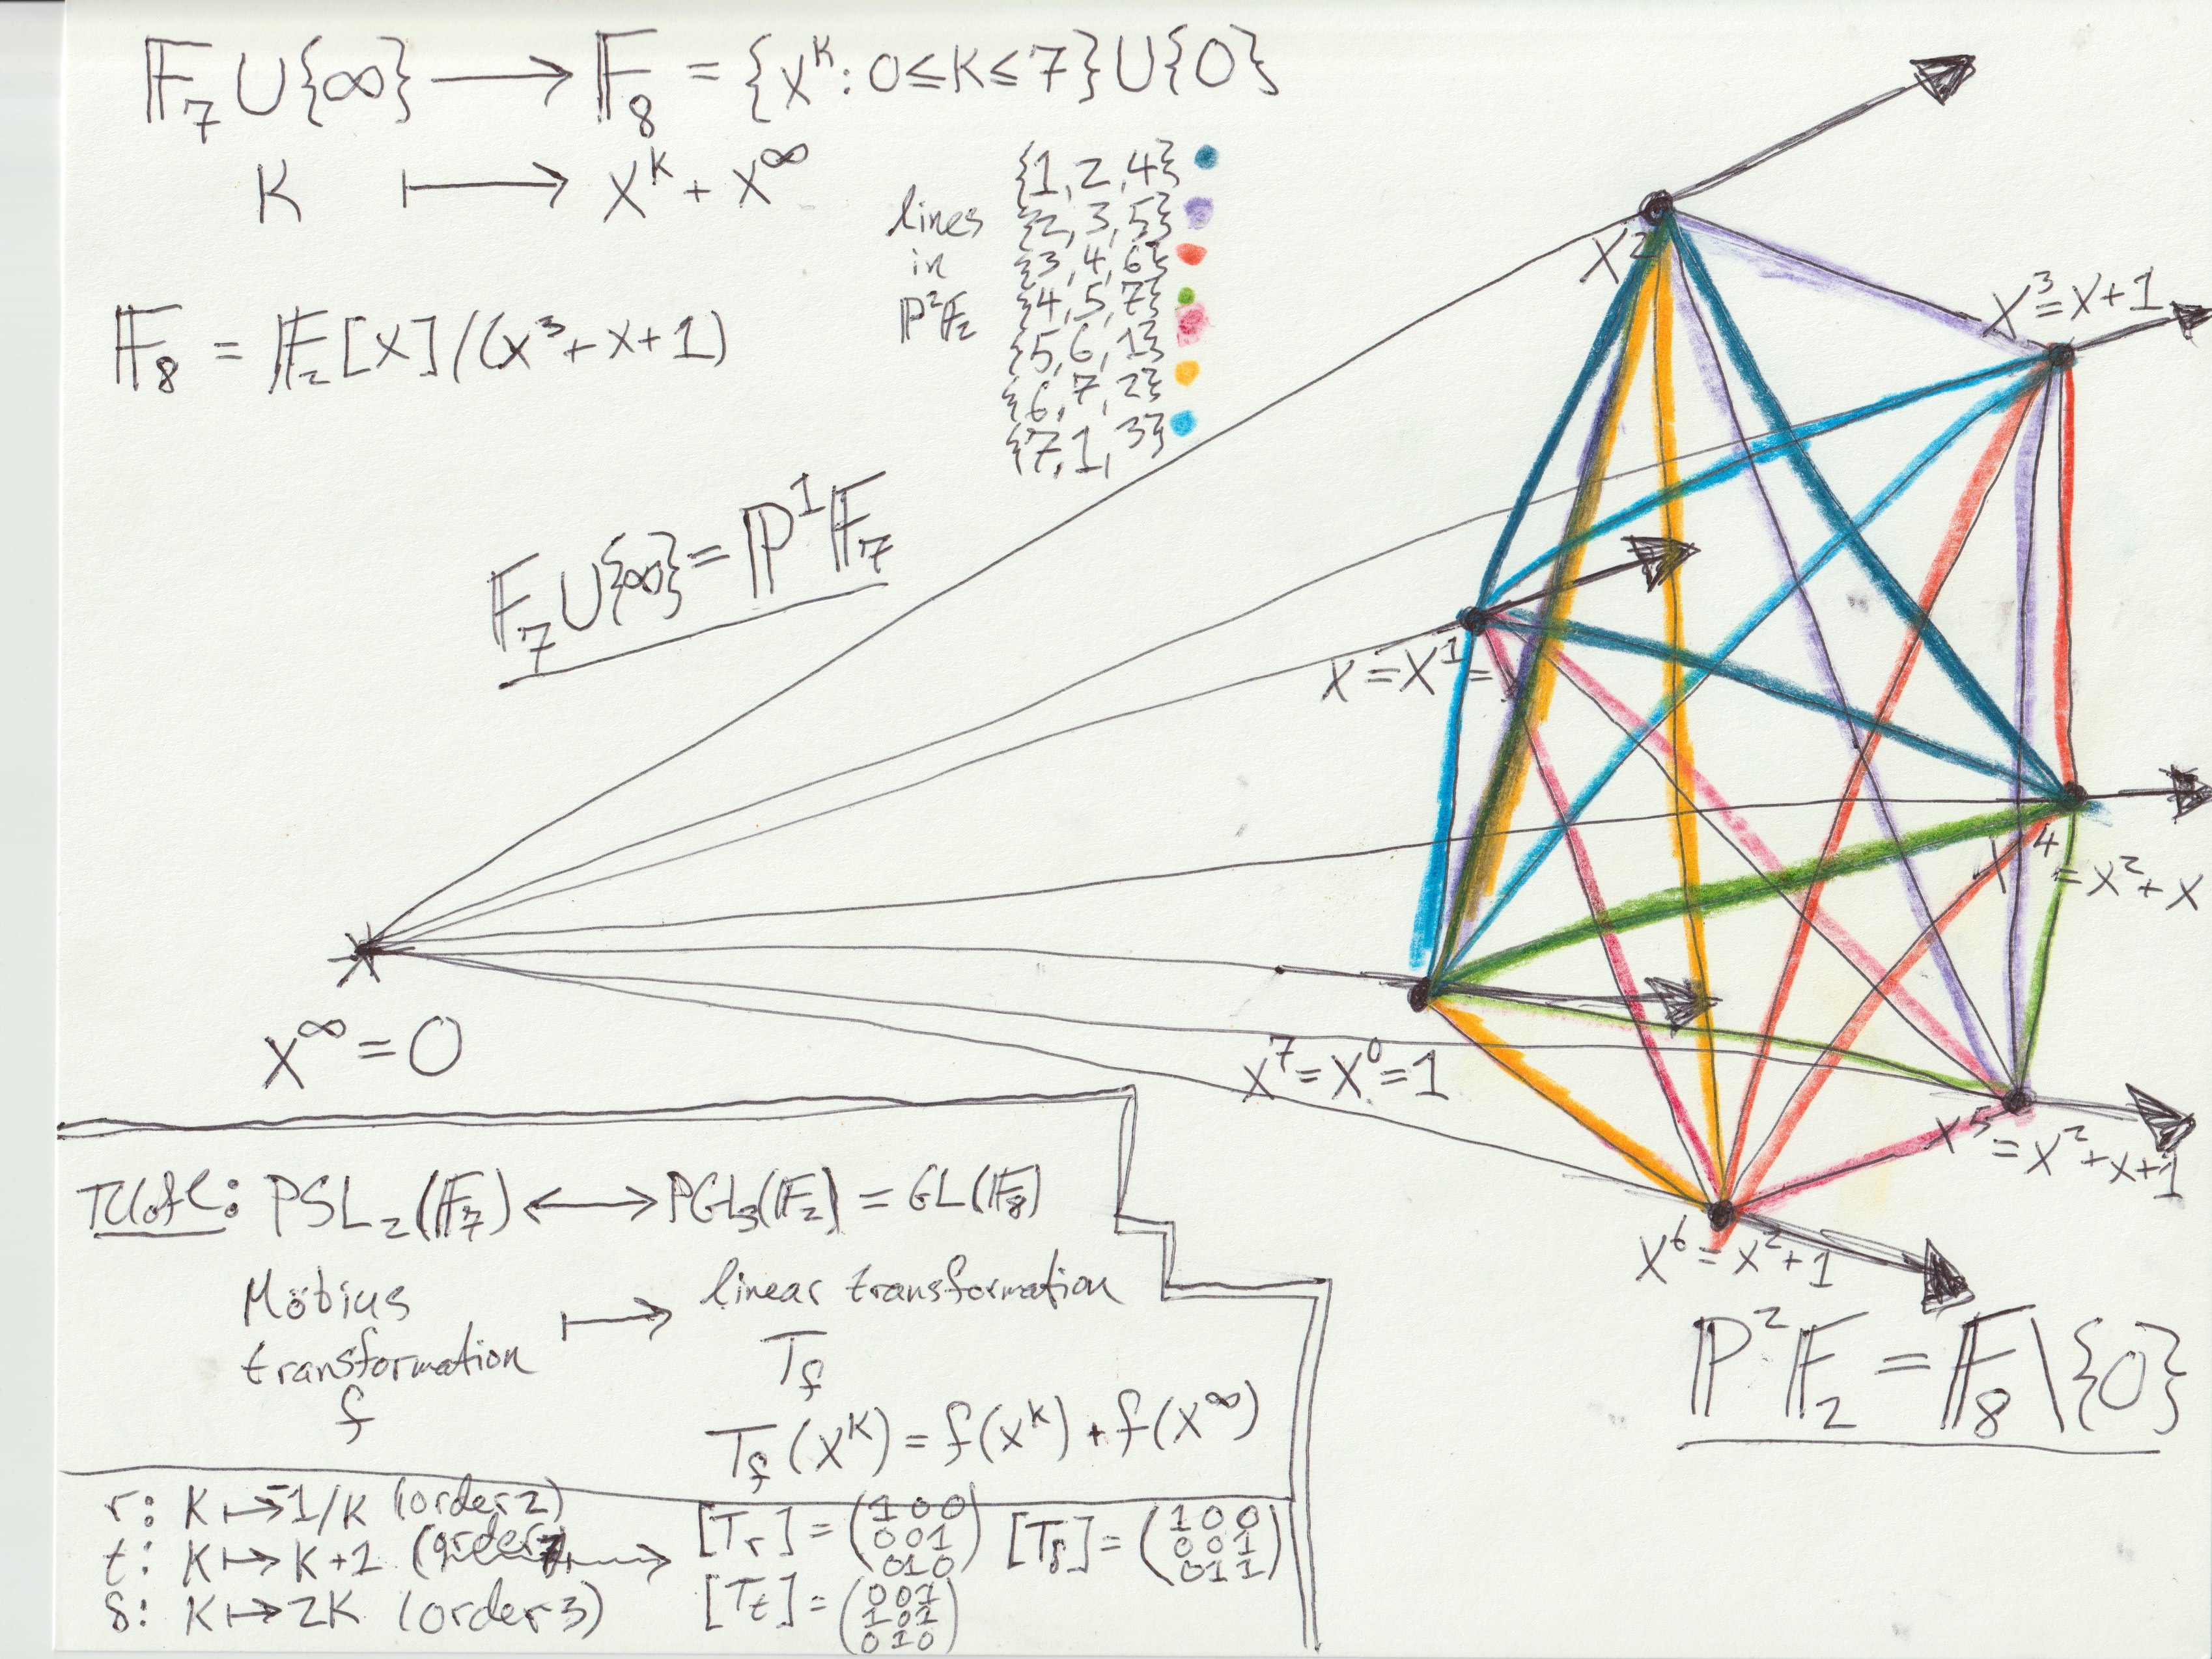 𝔽₇∪{∞} ⟶ 𝔽₈ = {x^k: 0≤k≤7}∪{0}
k ⟼ x^k + x^∞
lines in P²𝔽₂
{1, 2, 4}
{2, 3, 5}
{3, 4, 6}
{4, 5, 7}
{5, 6, 1}
{6, 7, 2}
{7, 1, 3}
𝔽₈ = 𝔽₂[x]/(x³+x+1)
𝔽₇∪{∞} = ℙ¹𝔽₇
x²
x³=x+1
x=x¹=
x⁴=x²+x
x^∞=0
x⁷=x⁰=1
x⁵=x²+x+1
x⁶=x²+1
ℙ²𝔽₂ = 𝔽₈\{0}
: PSL₂(𝔽₇) ⟷ PGL₃(𝔽₂) = GL(𝔽₈)
Möbius transformation f ⟼ linear transformation T_f
T_f(x^k) = f(x^k) + f(x^∞)
r: k ↦ -1/k (order 2)
t: k ↦ k+1 (order 7)
δ: k ↦ 2k (order 3)
⟶
[T_r] = (1 0 0
0 0 1
0 1 0)
[T_δ] = (1 0 0
0 0 1
0 1 1)
[T_t] = (0 0 1
1 0 1
0 1 0)